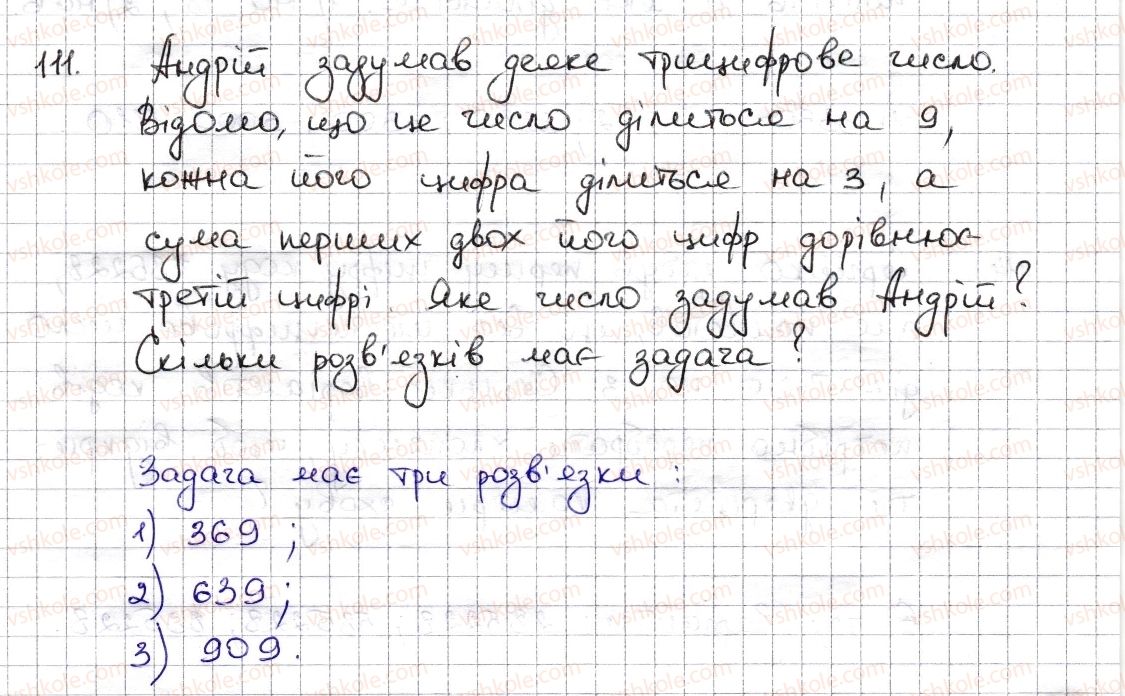 111. Андрій задумав деяке трицифрове число.
Відомо, що це число ділиться на 9,
кожна його цифра ділиться на 3, а
сума перших двох його цифр дорівнює
третій цифрі. Яке число задумав Андрій?
Скільки розв'язків має задача?
Задача має три розв'язки:
1) 369;
2) 639;
3) 909.